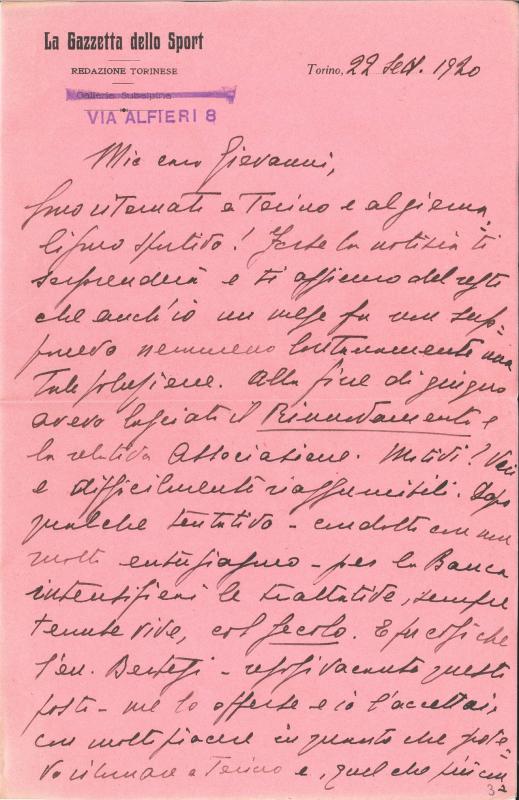 La Gazzetta dello Sport
REDAZIONE TORINESE
Galleria Subalpina
VIA ALFIERI 8
Torino, 22 Set. 1920
Mio caro Giovanni,
sono ritornato a Torino e al giorna-
lismo sportivo! Forse la notizia ti
sorprenderà e ti assicuro del resto
che anch'io un mese fa non sup=
ponevo nemmeno lontanamente una
tale soluzione. Alla fine di giugno
avevo lasciato il Rinnovamento e
la relativa Associazione. Motivi? Vari
e difficilmente riassumibili. Dopo
qualche tentativo - condotto con non
molto entusiasmo - per la Banca
intensificai le trattative, sempre
tenute vive, col Secolo. E fu così che
l'on. - questo
posto - me lo offerse e io l'accettai,
con molto piacere in quanto che pote=
vo ritornare a Torino e, quel che più con
3a